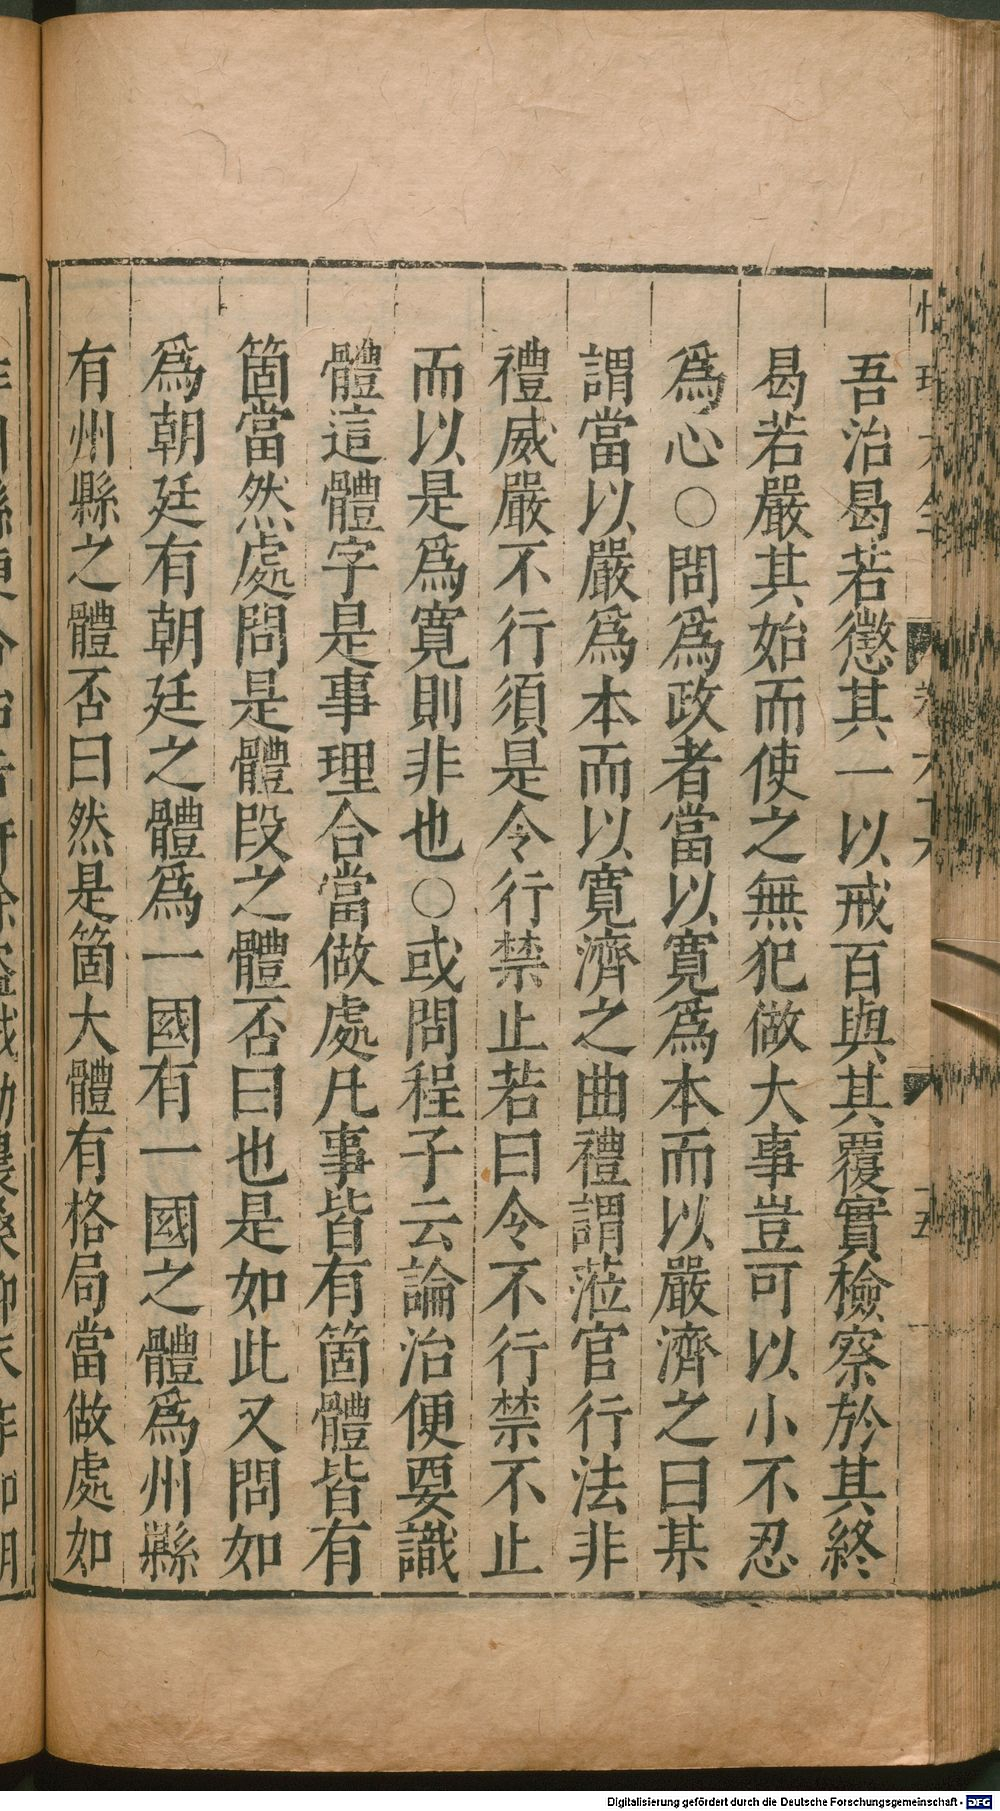 吾治曷若懲其一以戒百與其覆實檢察於其終
曷若嚴其始而使之無犯做大事豈可以小不忍
爲心○問爲政者當以寬爲本而以嚴濟之曰某
謂當以嚴爲本而以寬濟之曲禮謂蒞官行法非
禮威嚴不行須是令行禁止若曰令不行禁不止
而以是爲寬則非也○或問程子云論治便要識
體這體字是事理合當做處凡事皆有箇體皆有
箇當然處問是體段之體否曰也是如此又問如
爲朝廷有朝廷之體爲一國有一國之體爲州縣
有州縣之體否曰然是箇大體有格局當做處如
Digitalisierung gefördert durch die Deutsche Forschungsgemeinschaft - DFG